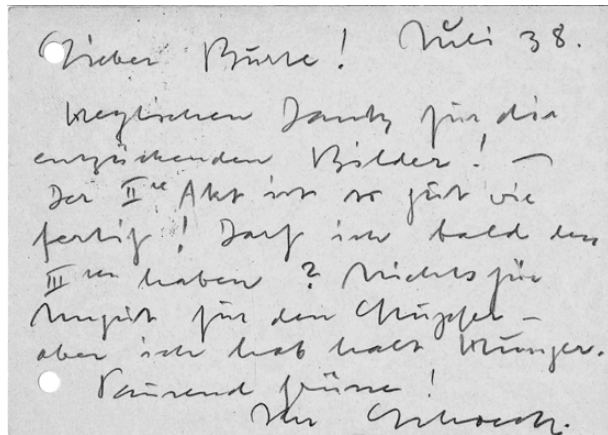 Lieber Burte! Juli 38.
Herzlichen Dank für die
entzückenden Bilder! —
Der IIte Akt ist so gut wie
fertig! Darf ich bald den
IIIten haben? Nichts für
ungut für den –
aber ich hab halt Hunger.
Tausend Grüsse!
Ihr Schoeck.